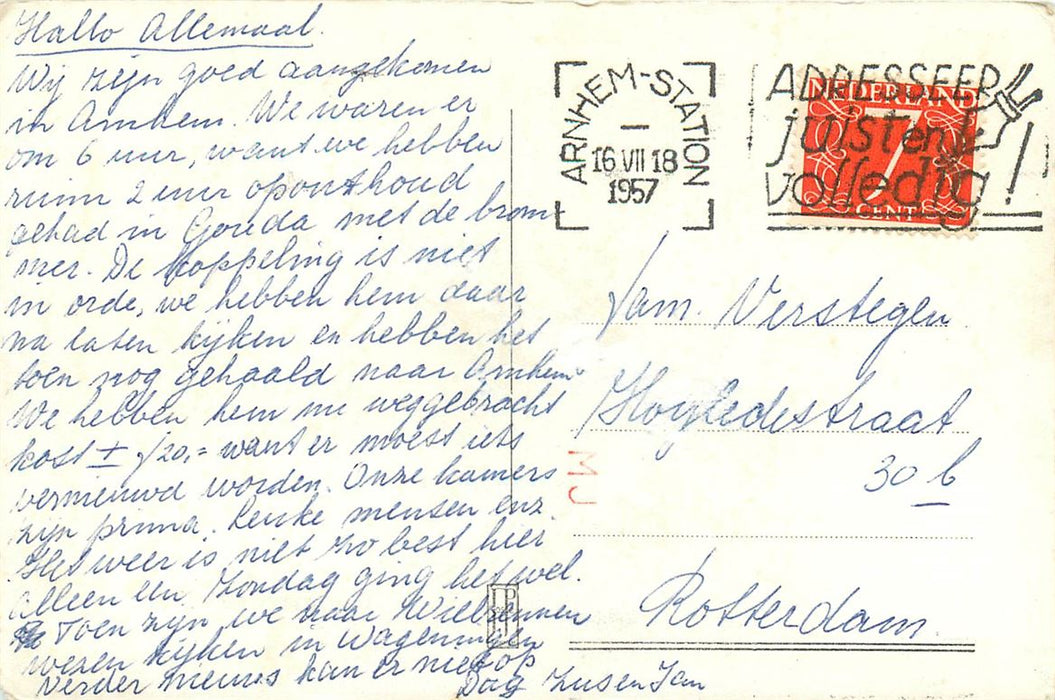 Hallo Allemaal.
Wij zijn goed aangekomen
in Arnhem. We waren er
om 6 uur, want we hebben
ruim 2 uur oponthoud
gehad in Gouda met de brom
mer. De koppeling is niet
in orde, we hebben hem daar
na laten kijken en hebben het
toen nog gehaald naar Arnhem.
We hebben hem nu weggebracht
kost ± f 20,= want er moest iets
vernieuwd worden. Onze kamers
zijn prima. Leuke mensen enz.
Het weer is niet zo best hier
alleen Zondag ging het wel.
Toen zijn we naar
wezen kijken in Wageningen
Verder nieuws kan er niet op
Dag Zus en Jan
ARNHEM-STATION
16 VII 18
1957
ADRESSEER
juist en
volledig!
NEDERLAND
7
CENT
Fam. Verstegen
Hogledestraat
30 b
Rotterdam.
MJ